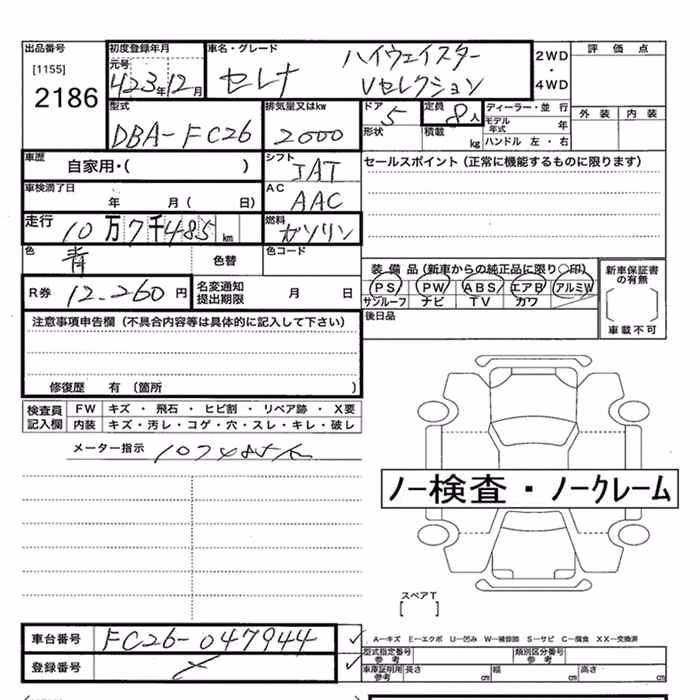 出品番号
[1155]
2186
初度登録年月
元号
H23年12月
車名・グレード
セレナ
ハイウェイスター
Vセレクション
2WD
・
4WD
評価点
外装 内装
型式
DBA-FC26
排気量又はkw
2000
ドア
5
形状
定員
8人
積載
kg
ディーラー・並行
モデル年式 年
ハンドル 左・右
車歴
自家用・( )
シフト
IAT
セールスポイント(正常に機能するものに限ります)
車検満了日
年 月( 日)
AC
AAC
走行
10万7千485km
燃料
ガソリン
色
青
色替
色コード
装備品(新車からの純正品に限り○印)
PS PW ABS エアB アルミW
サンルーフ ナビ TV カワ
新車保証書の有無
車載不可
R券
12.260円
名変通知提出期限
月 日
後日品
注意事項申告欄(不具合内容等は具体的に記入して下さい)
修復歴 有〔箇所 〕
検査員記入欄
FW キズ・飛石・ヒビ割・リペア跡・X要
内装 キズ・汚レ・コゲ・穴・スレ・キレ・破レ
メーター指示
107485km
ノー検査・ノークレーム
スペアT
[ ]
車台番号
FC26-047944
登録番号
A－キズ E－エクボ U－凹み W－補修跡 S－サビ C－腐食 XX－交換済
型式指定番号
参考
類別区分番号
参考
車庫証明用
参考
長さ cm
幅 cm
高さ cm